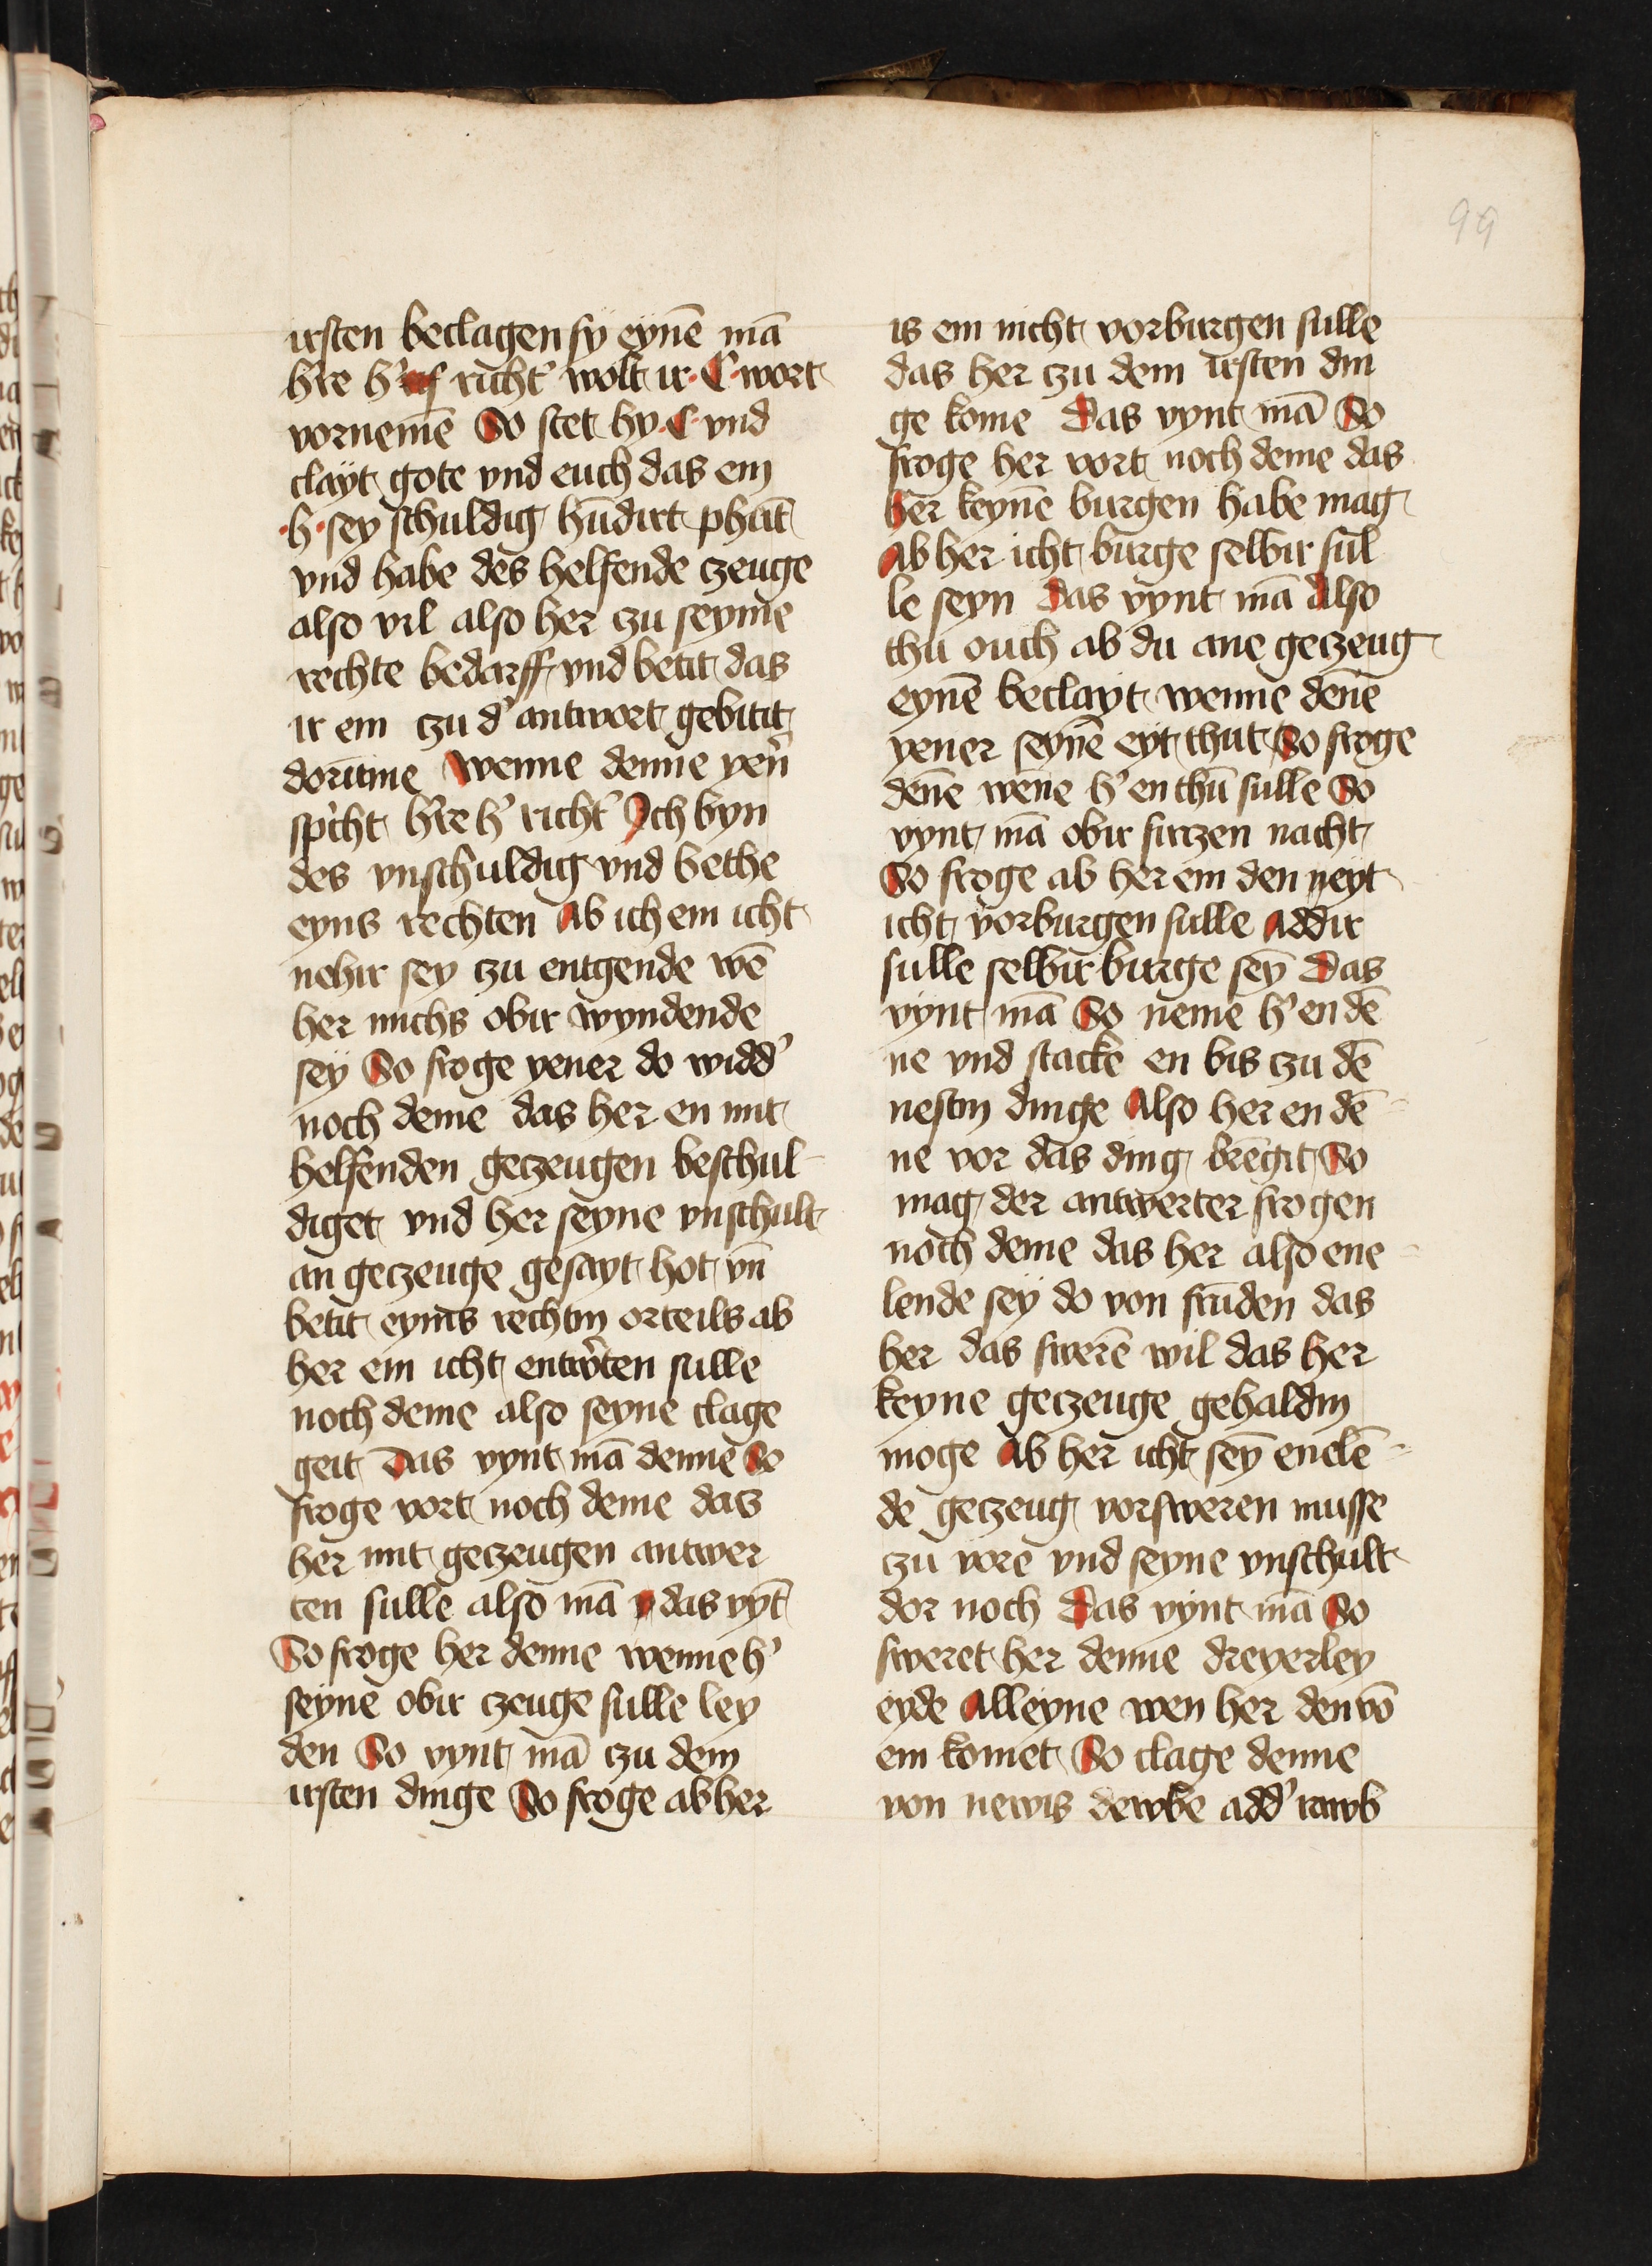 99
irsten beclagen sy eynē mā
h're h' richt' wolt ir ·C· wort
vornemē So stet hy ·C· vnd
clayt gote vnd euch das em
·h· sey schuldig hūdirt phūt
vnd habe des helfende czeuge
also vil also her zu seyme
rechte bedarff vnd betit das
ir em czu d' antwort gebitit
dorūme Wenne denne yen'
sp'cht h're h' richt' Ich byn
des vnschuldig vnd bethe
eyns rechten Ab ich em icht
nehir sey zu entgende wē
her michs obir wyndende
sey So froge yener do widd'
noch deme das her en mit
helfenden geczeugen beschul-
diget vnd her seyne vnschult
an geczeuge gesayt hot vn̄
betit eynis rechtin orteils ab
her em icht entw'ten sulle
noch deme also seyne clage
geit Das vynt mā denne So
froge vort noch deme das
her mit geczeugen antwer
ten sulle also mā das vyt̄
So froge her denne wenne h'
seyne obir czeuge sulle ley
den So vynt mā czu dem
irsten dinge So froge ab her
is em nicht vorburgen sulle
das her czu dem irsten din
ge kome Das vynt mā So
froge her vort noch deme das
her keynē burgen habe mag
Ab her icht burge selbir sul
le seyn Das vynt mā Also
thu ouch ab du ane geczeug
eynē beclayt wenne denē
yener seynē eyt thut So froge
dēne wēne h' en thū sulle So
vynt mā obir firczen nacht
So froge ab her em den neyt
icht vorburgen sulle Addir
sulle selbir burge sey̅ Das
vynt mā So neme h' en dē
ne vnd stacke en bis czu dē
nestin dinge Also her en dē-
ne vor das ding brēgit So
mag der antwerter frogen
noch deme das her also ene-
lende sey do von frūden das
her das swerē wil das her
keyne geczeuge gehaldin
moge Ab her icht sey̅ enelē-
de geczeug vorsweren musse
czu vore vnd seyne vnschult
dor noch Das vynt mā So
sweret her denne dreyerley
eyde Alleyne wen her den vō
em komet So clage denne
von newis dewbe add' rawb